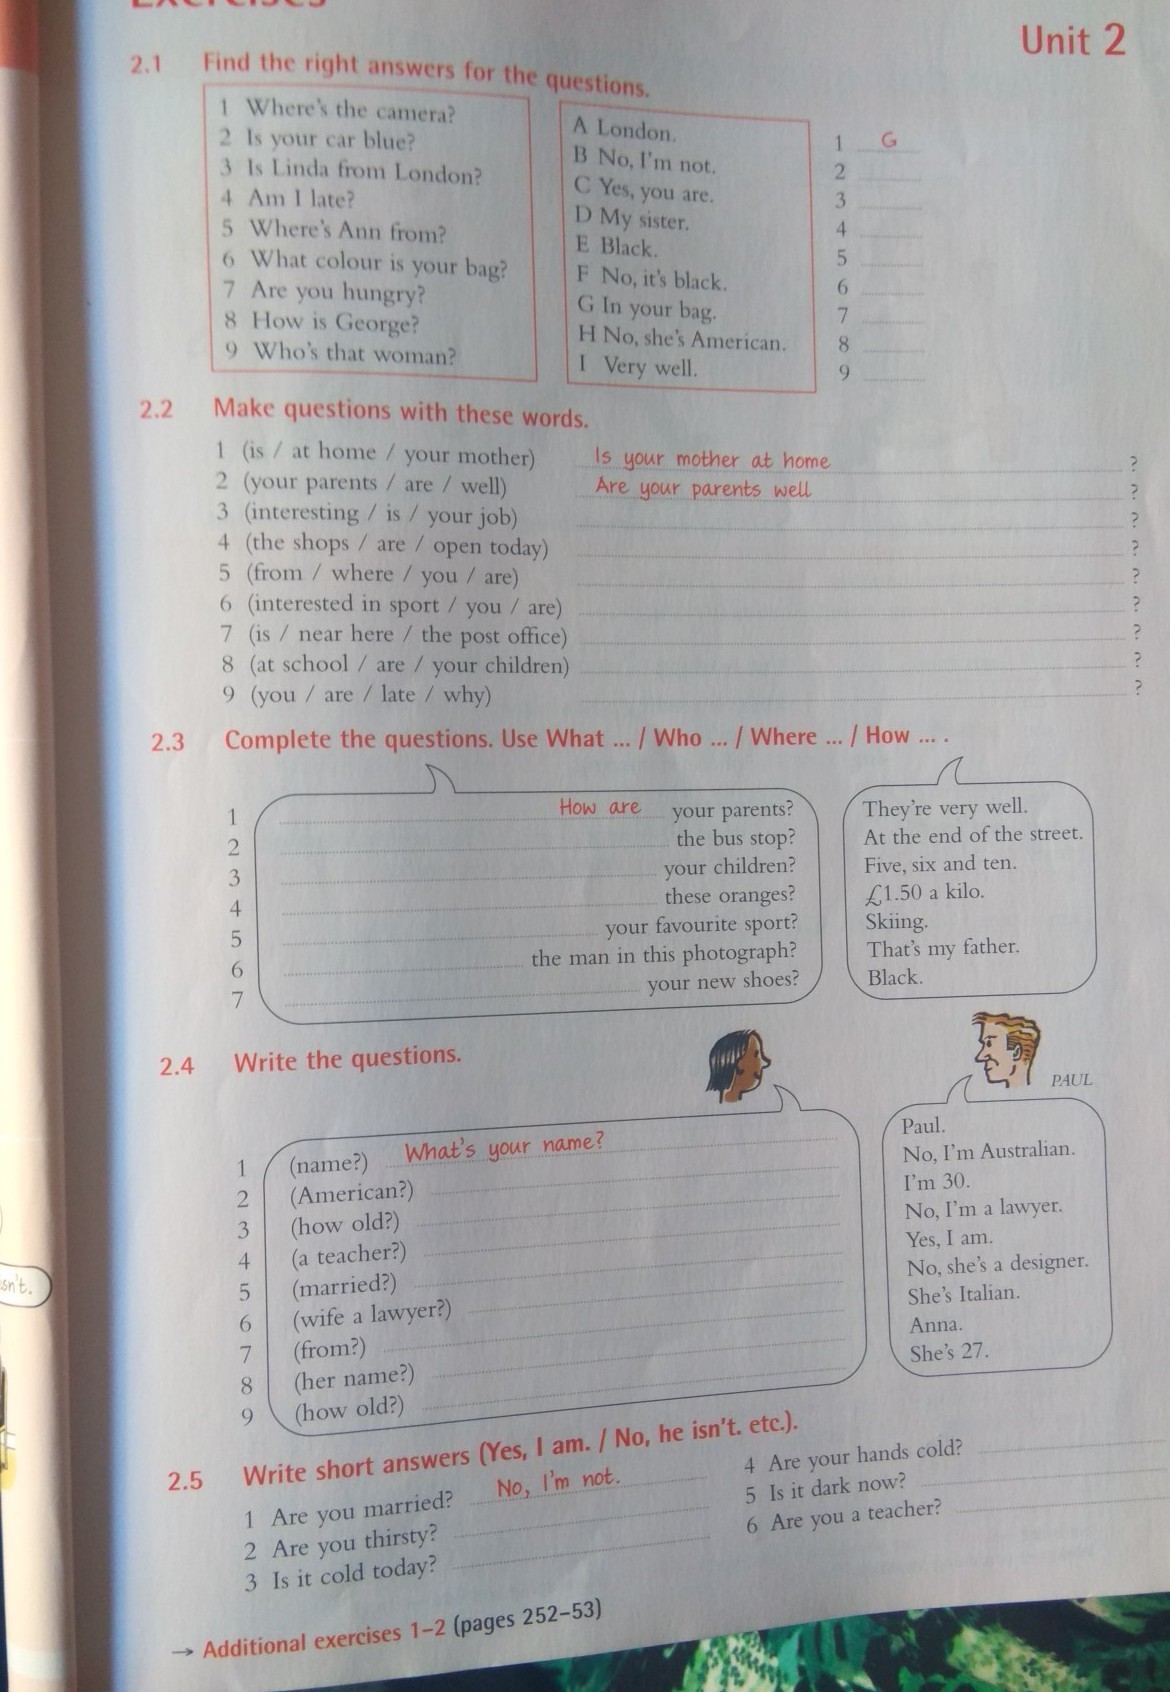 Exercises
Unit 2
2.1 Find the right answers for the questions.
1 Where's the camera?
2 Is your car blue?
3 Is Linda from London?
4 Am I late?
5 Where's Ann from?
6 What colour is your bag?
7 Are you hungry?
8 How is George?
9 Who's that woman?
A London.
B No, I'm not.
C Yes, you are.
D My sister.
E Black.
F No, it's black.
G In your bag.
H No, she's American.
I Very well.
1 G
2
3
4
5
6
7
8
9
2.2 Make questions with these words.
1 (is / at home / your mother) Is your mother at home ?
2 (your parents / are / well) Are your parents well ?
3 (interesting / is / your job) ?
4 (the shops / are / open today) ?
5 (from / where / you / are) ?
6 (interested in sport / you / are) ?
7 (is / near here / the post office) ?
8 (at school / are / your children) ?
9 (you / are / late / why) ?
2.3 Complete the questions. Use What ... / Who ... / Where ... / How ... .
1 How are your parents?
2 the bus stop?
3 your children?
4 these oranges?
5 your favourite sport?
6 the man in this photograph?
7 your new shoes?
They're very well.
At the end of the street.
Five, six and ten.
£1.50 a kilo.
Skiing.
That's my father.
Black.
2.4 Write the questions.
PAUL
1 (name?) What's your name?
2 (American?)
3 (how old?)
4 (a teacher?)
5 (married?)
6 (wife a lawyer?)
7 (from?)
8 (her name?)
9 (how old?)
Paul.
No, I'm Australian.
I'm 30.
No, I'm a lawyer.
Yes, I am.
No, she's a designer.
She's Italian.
Anna.
She's 27.
sn't.
2.5 Write short answers (Yes, I am. / No, he isn't. etc.).
1 Are you married? No, I'm not.
2 Are you thirsty?
3 Is it cold today?
4 Are your hands cold?
5 Is it dark now?
6 Are you a teacher?
→ Additional exercises 1–2 (pages 252–53)